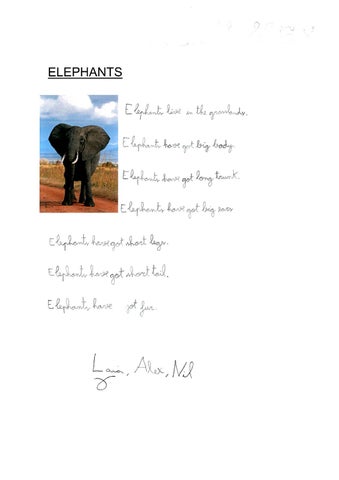 ELEPHANTS
Elephants live in the grasslands.
Elephants have got big body.
Elephants have got long trunk.
Elephants have got big ears
Elephants have got short legs.
Elephants have got short tail.
Elephants have got fur
Laia, Alex, Nil